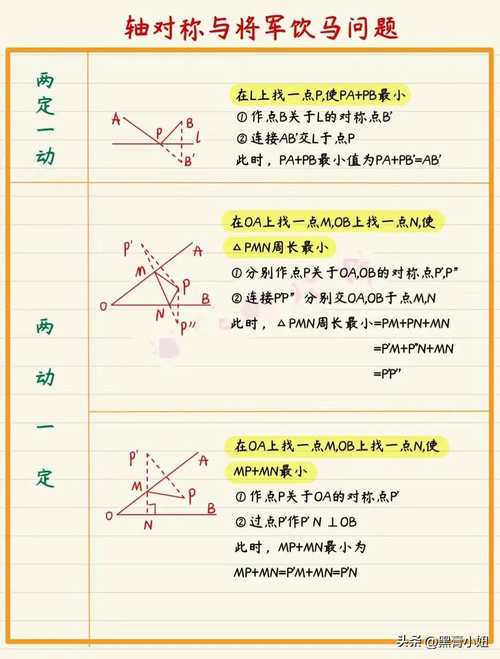 轴对称与将军饮马问题
两定一动
A
B
P
l
B'
在L上找一点P,使PA+PB最小
①作点B关于L的对称点B'
②连接AB'交L于点P
此时，PA+PB最小值为PA+PB'=AB'
两动一定
P'
A
M
P
O
N
B
P''
在OA上找一点M,OB上找一点N,使
△PMN周长最小
①分别作点P关于OA,OB的对称点P',P''
②连接P'P'' 分别交OA,OB于点M,N
此时，△PMN周长最小=PM+PN+MN
=P'M+P''N+MN
=P'P''
P'
A
M
P
O
N
B
在OA上找一点M,OB上找一点N,使
MP+MN最小
①作点P关于OA的对称点P'
②过点P'作P'N⊥OB
此时，MP+MN最小为
MP+MN=P'M+MN=P'N
头条@黑膏小妞